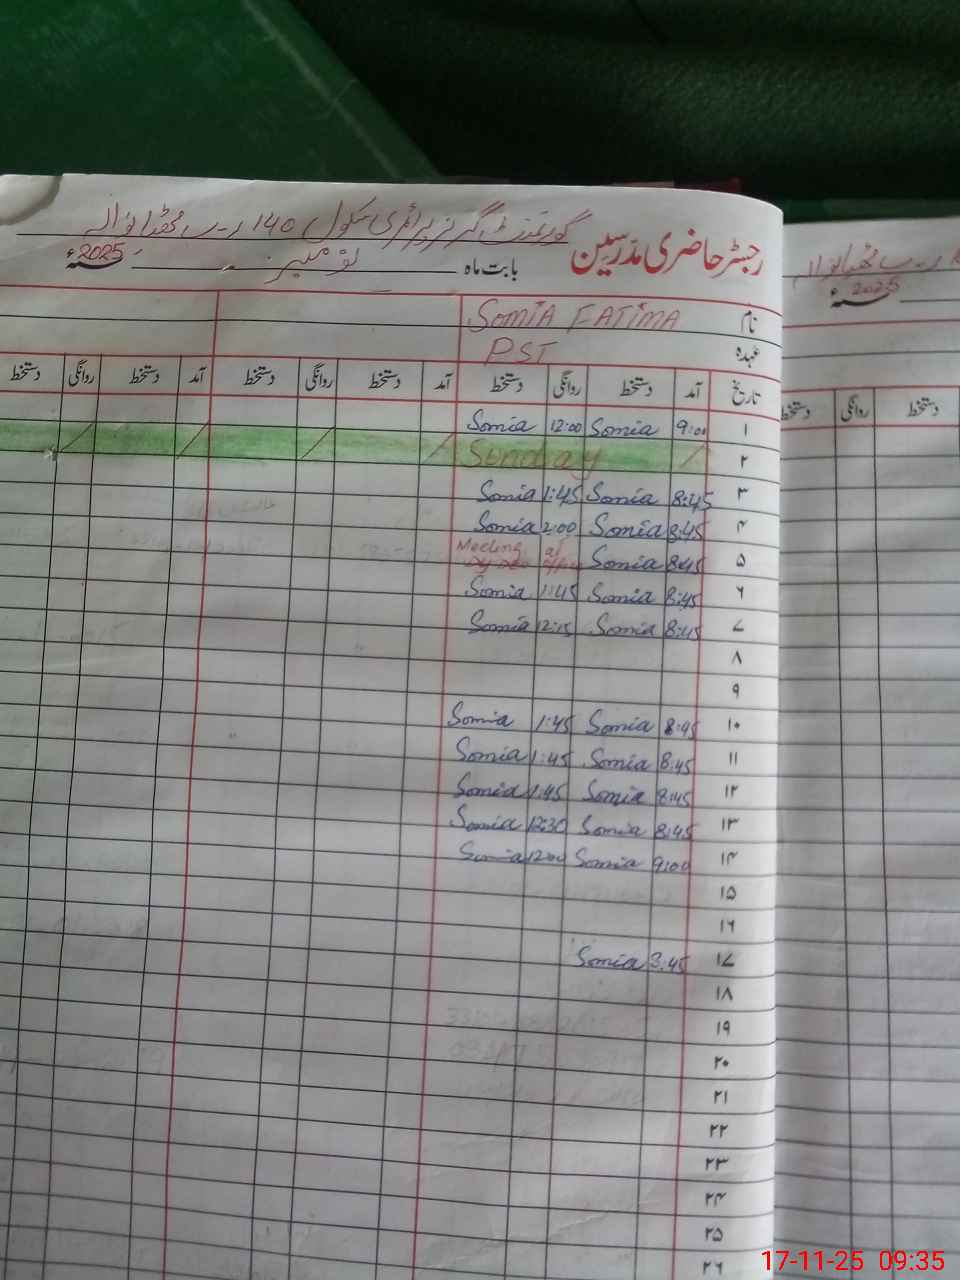 گورنمنٹ گرلز پرائمری سکول 140 ر۔ب
رجسٹر حاضری مدرسین
بابت ماہ نومبر 2025ء
نام SOMIA FATIMA
عہدہ PST
تاریخ آمد دستخط روانگی دستخط آمد دستخط روانگی دستخط آمد دستخط روانگی دستخط
۱ 9:00 Somia 12:00 Somia
۲ Sunday
۳ 8:45 Somia 1:45 Somia
۴ 8:45 Somia 2:00 Somia
۵ 8:45 Somia Meeting at
۶ 8:45 Somia 1:45 Somia
۷ 8:45 Somia 12:15 Somia
۸
۹
۱۰ 8:45 Somia 1:45 Somia
۱۱ 8:45 Somia 1:45 Somia
۱۲ 8:45 Somia 1:45 Somia
۱۳ 8:45 Somia 12:30 Somia
۱۴ 9:00 Somia 12:00 Somia
۱۵
۱۶
۱۷ 8:45 Somia
۱۸
۱۹
۲۰
۲۱
۲۲
۲۳
۲۴
۲۵
۲۶
2025ء
دستخط روانگی دستخط
17-11-25 09:35